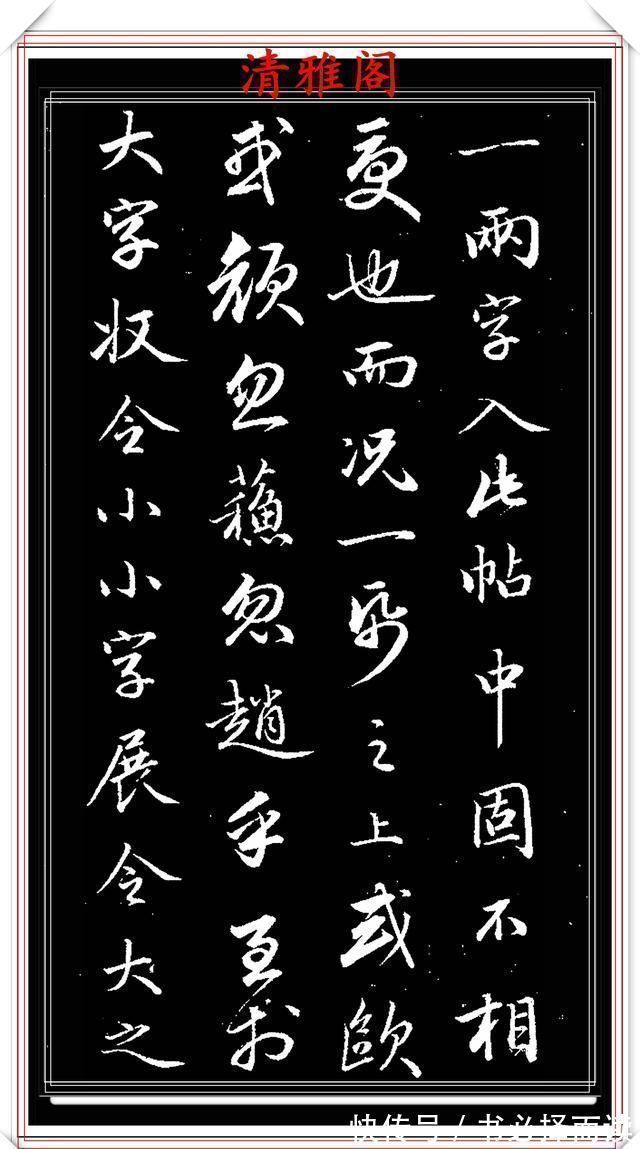 清雅阁
一兩字入此帖中固不相
更也而況一帋之上或歐
或顏忽蘓忽趙乎至於
大字收令小小字展令大之
快传号/书必择而读